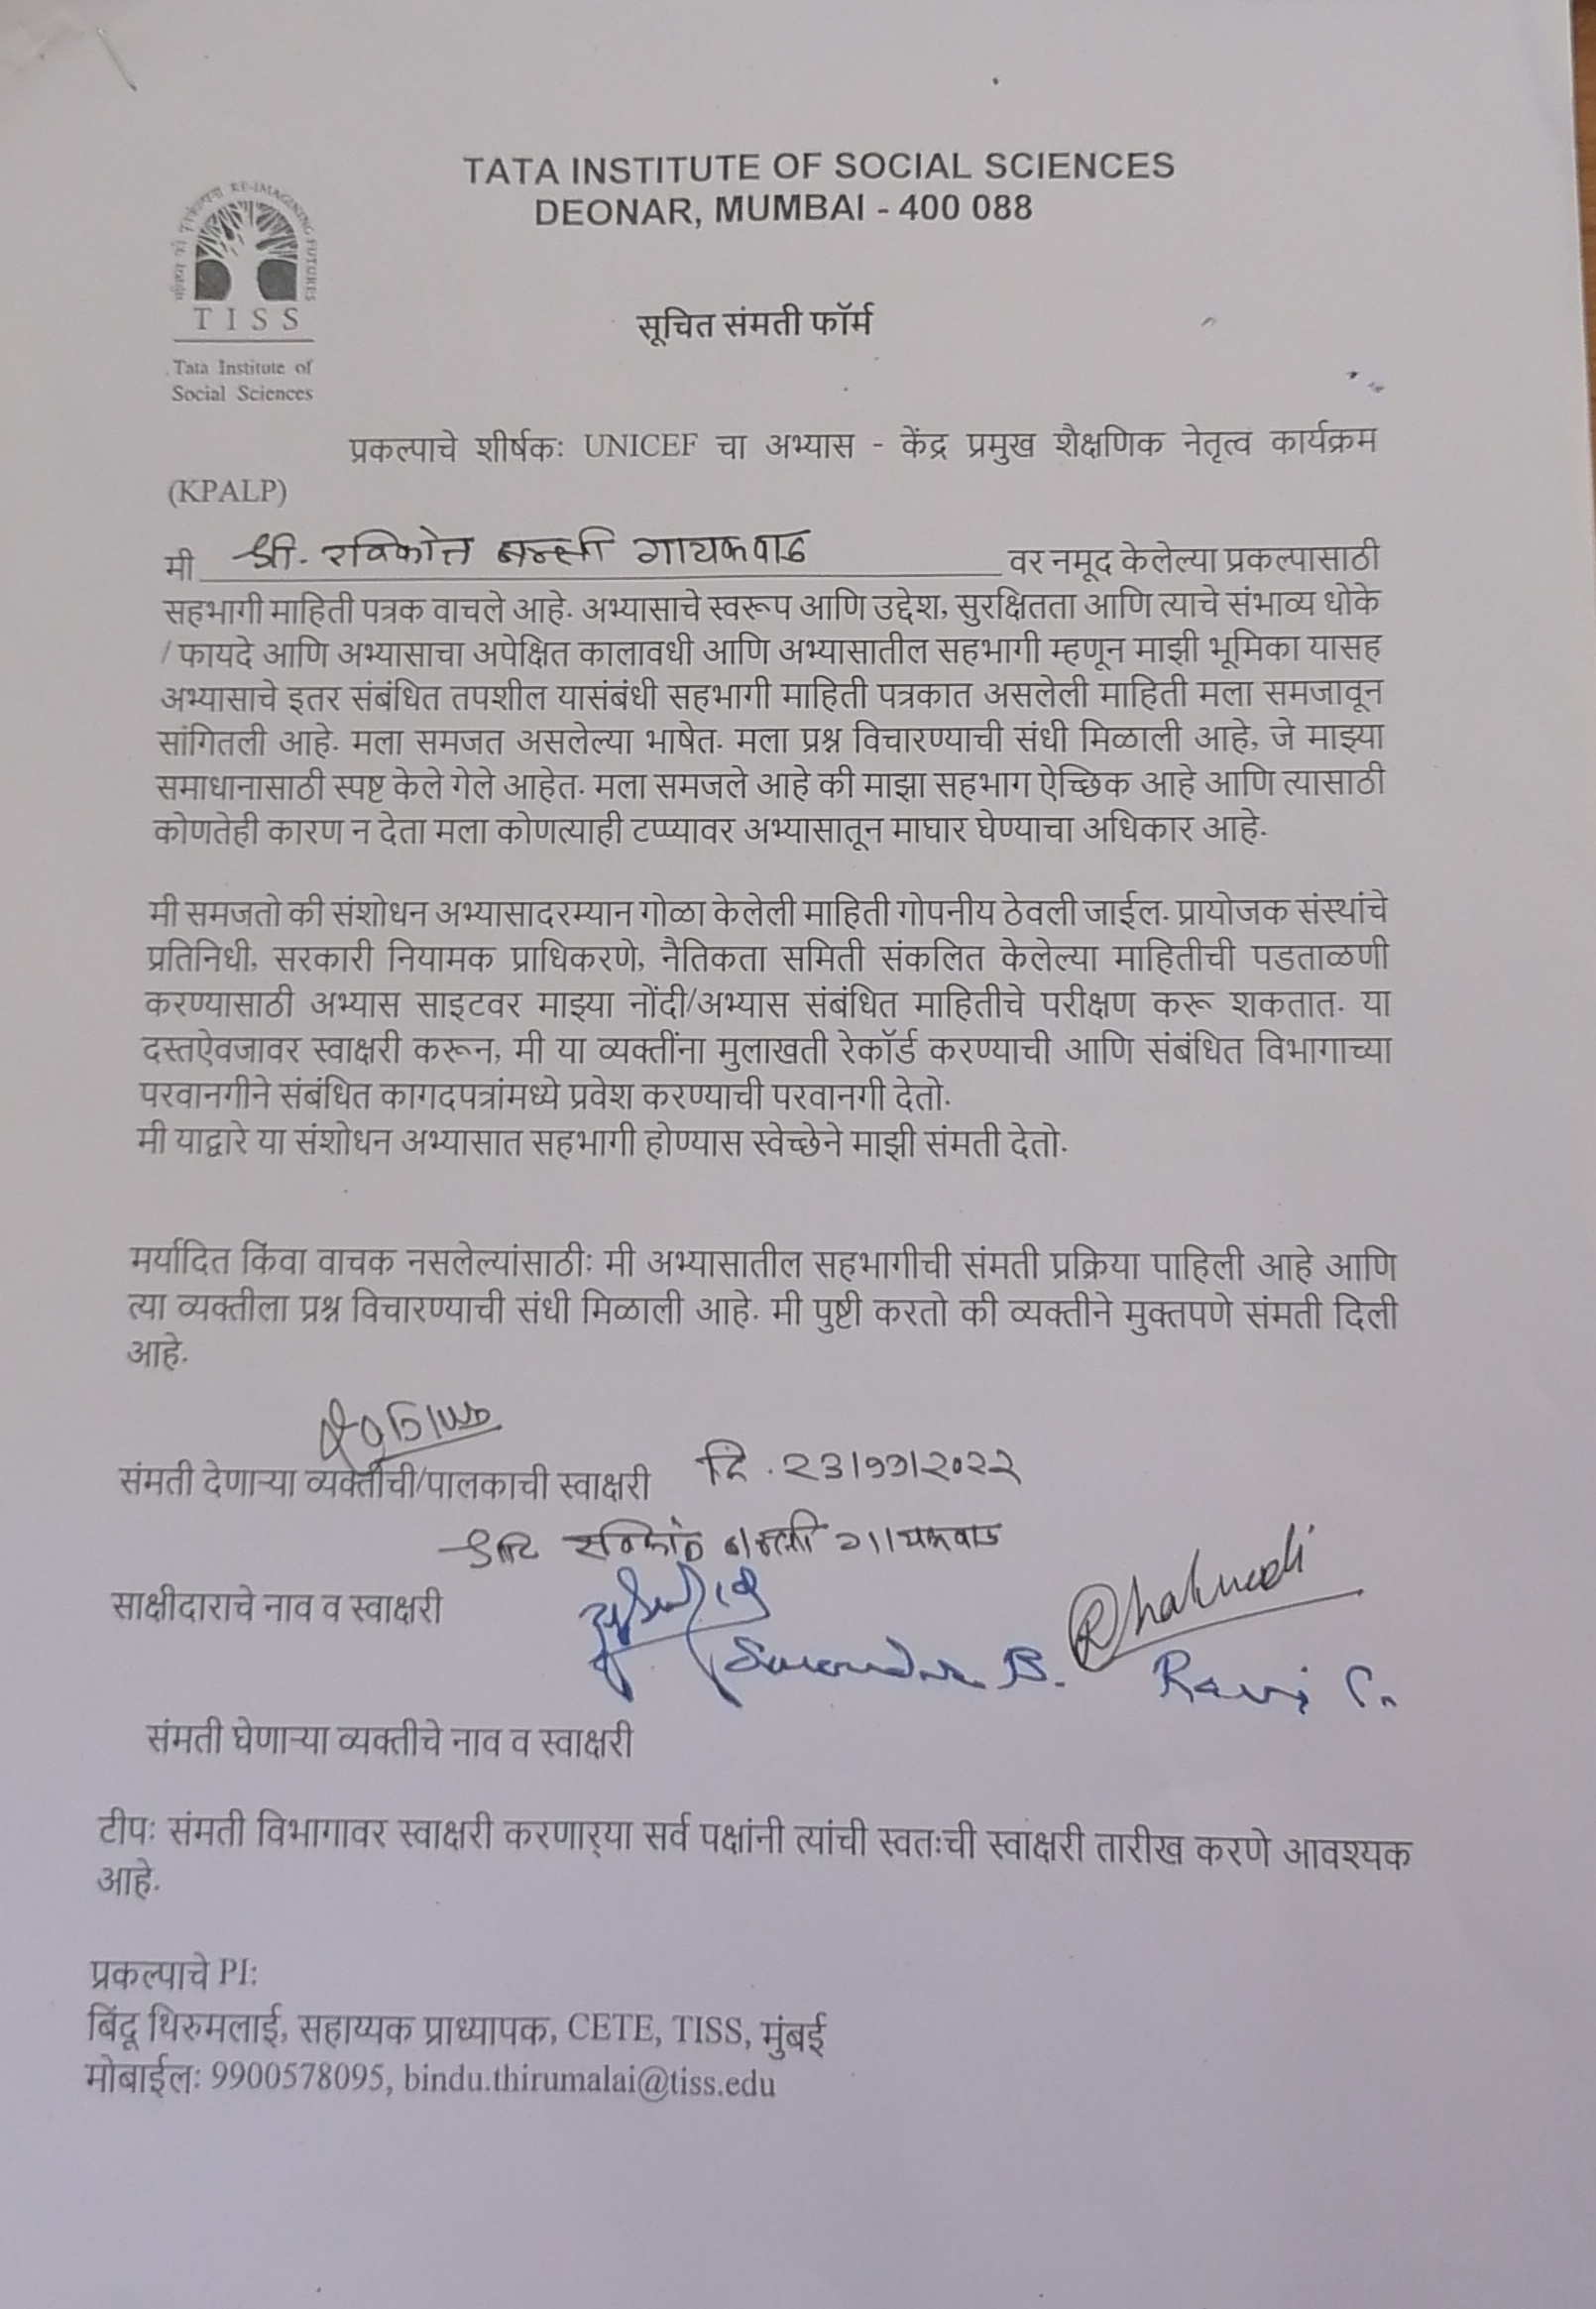 TATA INSTITUTE OF SOCIAL SCIENCES
DEONAR, MUMBAI - 400 088
RE-IMAGINING FUTURES
TISS
Tata Institute of
Social Sciences
सूचित संमती फॉर्म
प्रकल्पाचे शीर्षक: UNICEF चा अभ्यास - केंद्र प्रमुख शैक्षणिक नेतृत्व कार्यक्रम
(KPALP)
मी श्री. रविकांत बन्सी गायकवाड वर नमूद केलेल्या प्रकल्पासाठी
सहभागी माहिती पत्रक वाचले आहे. अभ्यासाचे स्वरूप आणि उद्देश, सुरक्षितता आणि त्याचे संभाव्य धोके
/ फायदे आणि अभ्यासाचा अपेक्षित कालावधी आणि अभ्यासातील सहभागी म्हणून माझी भूमिका यासह
अभ्यासाचे इतर संबंधित तपशील यासंबंधी सहभागी माहिती पत्रकात असलेली माहिती मला समजावून
सांगितली आहे. मला समजत असलेल्या भाषेत. मला प्रश्न विचारण्याची संधी मिळाली आहे, जे माझ्या
समाधानासाठी स्पष्ट केले गेले आहेत. मला समजले आहे की माझा सहभाग ऐच्छिक आहे आणि त्यासाठी
कोणतेही कारण न देता मला कोणत्याही टप्प्यावर अभ्यासातून माघार घेण्याचा अधिकार आहे.
मी समजतो की संशोधन अभ्यासादरम्यान गोळा केलेली माहिती गोपनीय ठेवली जाईल. प्रायोजक संस्थांचे
प्रतिनिधी, सरकारी नियामक प्राधिकरणे, नैतिकता समिती संकलित केलेल्या माहितीची पडताळणी
करण्यासाठी अभ्यास साइटवर माझ्या नोंदी/अभ्यास संबंधित माहितीचे परीक्षण करू शकतात. या
दस्तऐवजावर स्वाक्षरी करून, मी या व्यक्तींना मुलाखती रेकॉर्ड करण्याची आणि संबंधित विभागाच्या
परवानगीने संबंधित कागदपत्रांमध्ये प्रवेश करण्याची परवानगी देतो.
मी याद्वारे या संशोधन अभ्यासात सहभागी होण्यास स्वेच्छेने माझी संमती देतो.
मर्यादित किंवा वाचक नसलेल्यांसाठी: मी अभ्यासातील सहभागीची संमती प्रक्रिया पाहिली आहे आणि
त्या व्यक्तीला प्रश्न विचारण्याची संधी मिळाली आहे. मी पुष्टी करतो की व्यक्तीने मुक्तपणे संमती दिली
आहे.
संमती देणाऱ्या व्यक्तीची/पालकाची स्वाक्षरी दि. २३/११/२०२२
श्री रविकांत बन्सी गायकवाड
साक्षीदाराचे नाव व स्वाक्षरी
B. Ravi C.
संमती घेणाऱ्या व्यक्तीचे नाव व स्वाक्षरी
टीप: संमती विभागावर स्वाक्षरी करणाऱ्या सर्व पक्षांनी त्यांची स्वतःची स्वाक्षरी तारीख करणे आवश्यक
आहे.
प्रकल्पाचे PI:
बिंदू थिरुमलाई, सहाय्यक प्राध्यापक, CETE, TISS, मुंबई
मोबाईल: 9900578095, bindu.thirumalai@tiss.edu